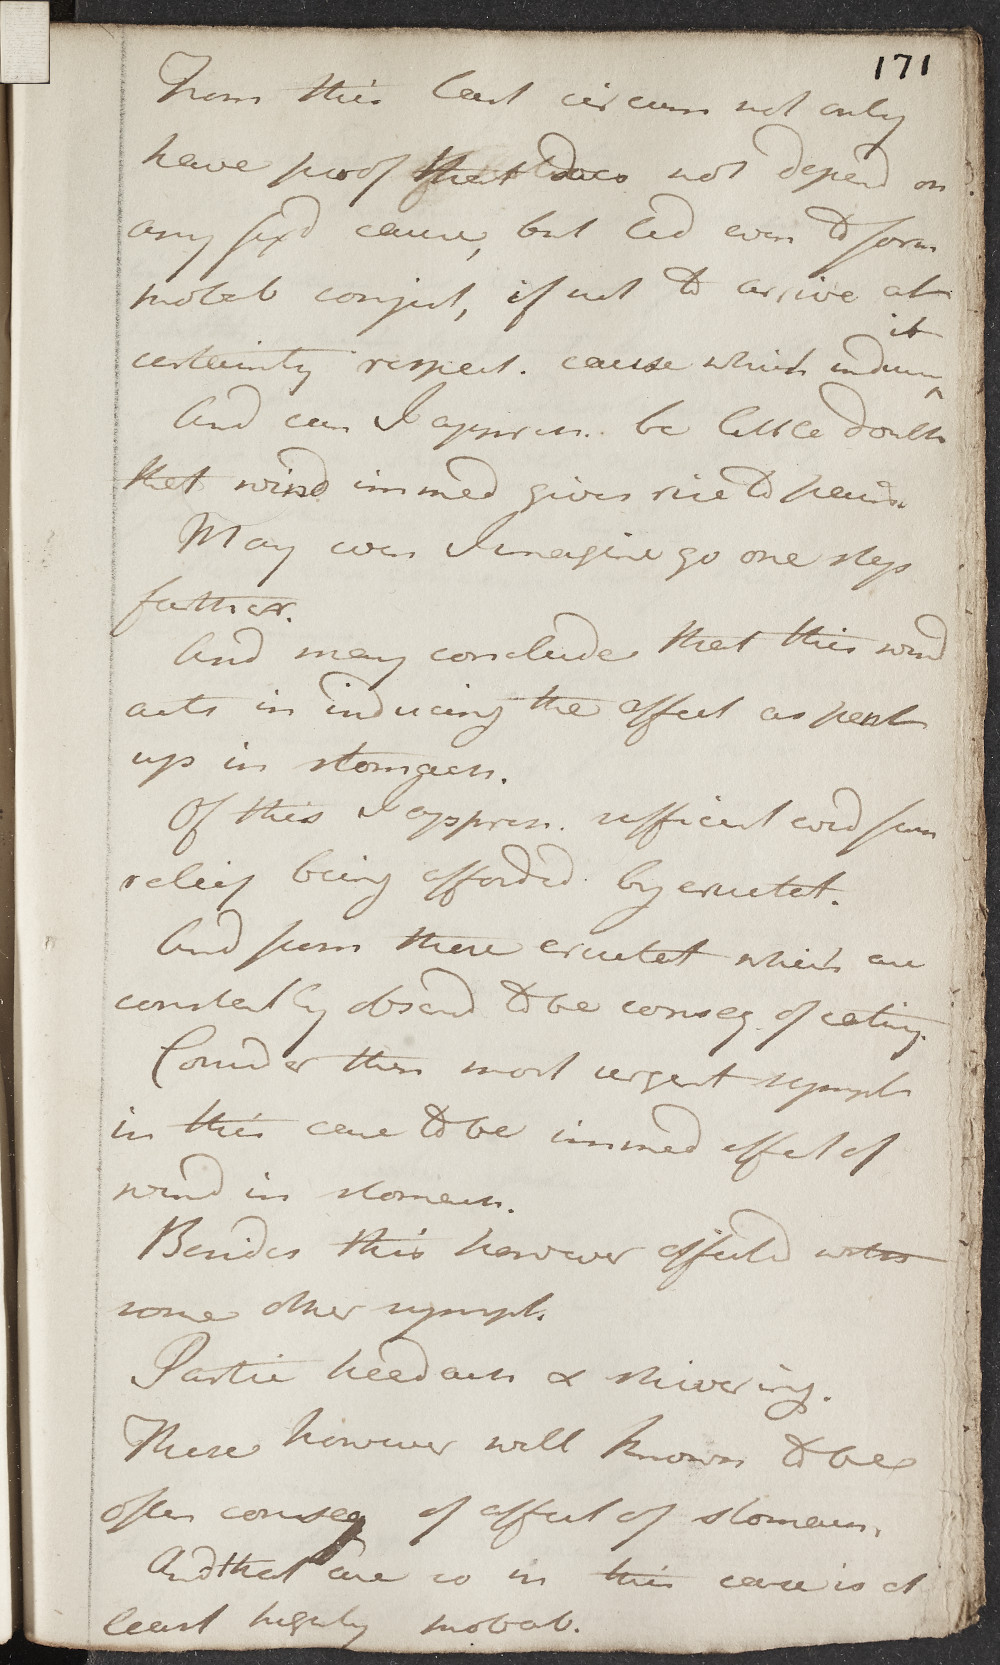 171
From this last circum not only
have proof that does not depend on
any fix'd cause, but led even to form
probab conject, if not to arrive at
certainty respect. cause which induces it
And can I appreh. be little doubt
that wind immed gives rise to pain.
May even I imagine go one step
farther.
And may conclude that this wind
acts in inducing the effect as pent
up in stomach.
Of this I appreh. sufficient evid from
relief being afforded by eructat.
And from these eructat which are
constantly observd to be conseq. of eating.
Consider then most urgent sympt
in this case to be immed effect of
wind in stomach.
Besides this however affected with
some other sympt.
Partic headach & shivering.
These however well known to be
often conseq of affect of stomach.
And that are so in this case is at
least highly probab.